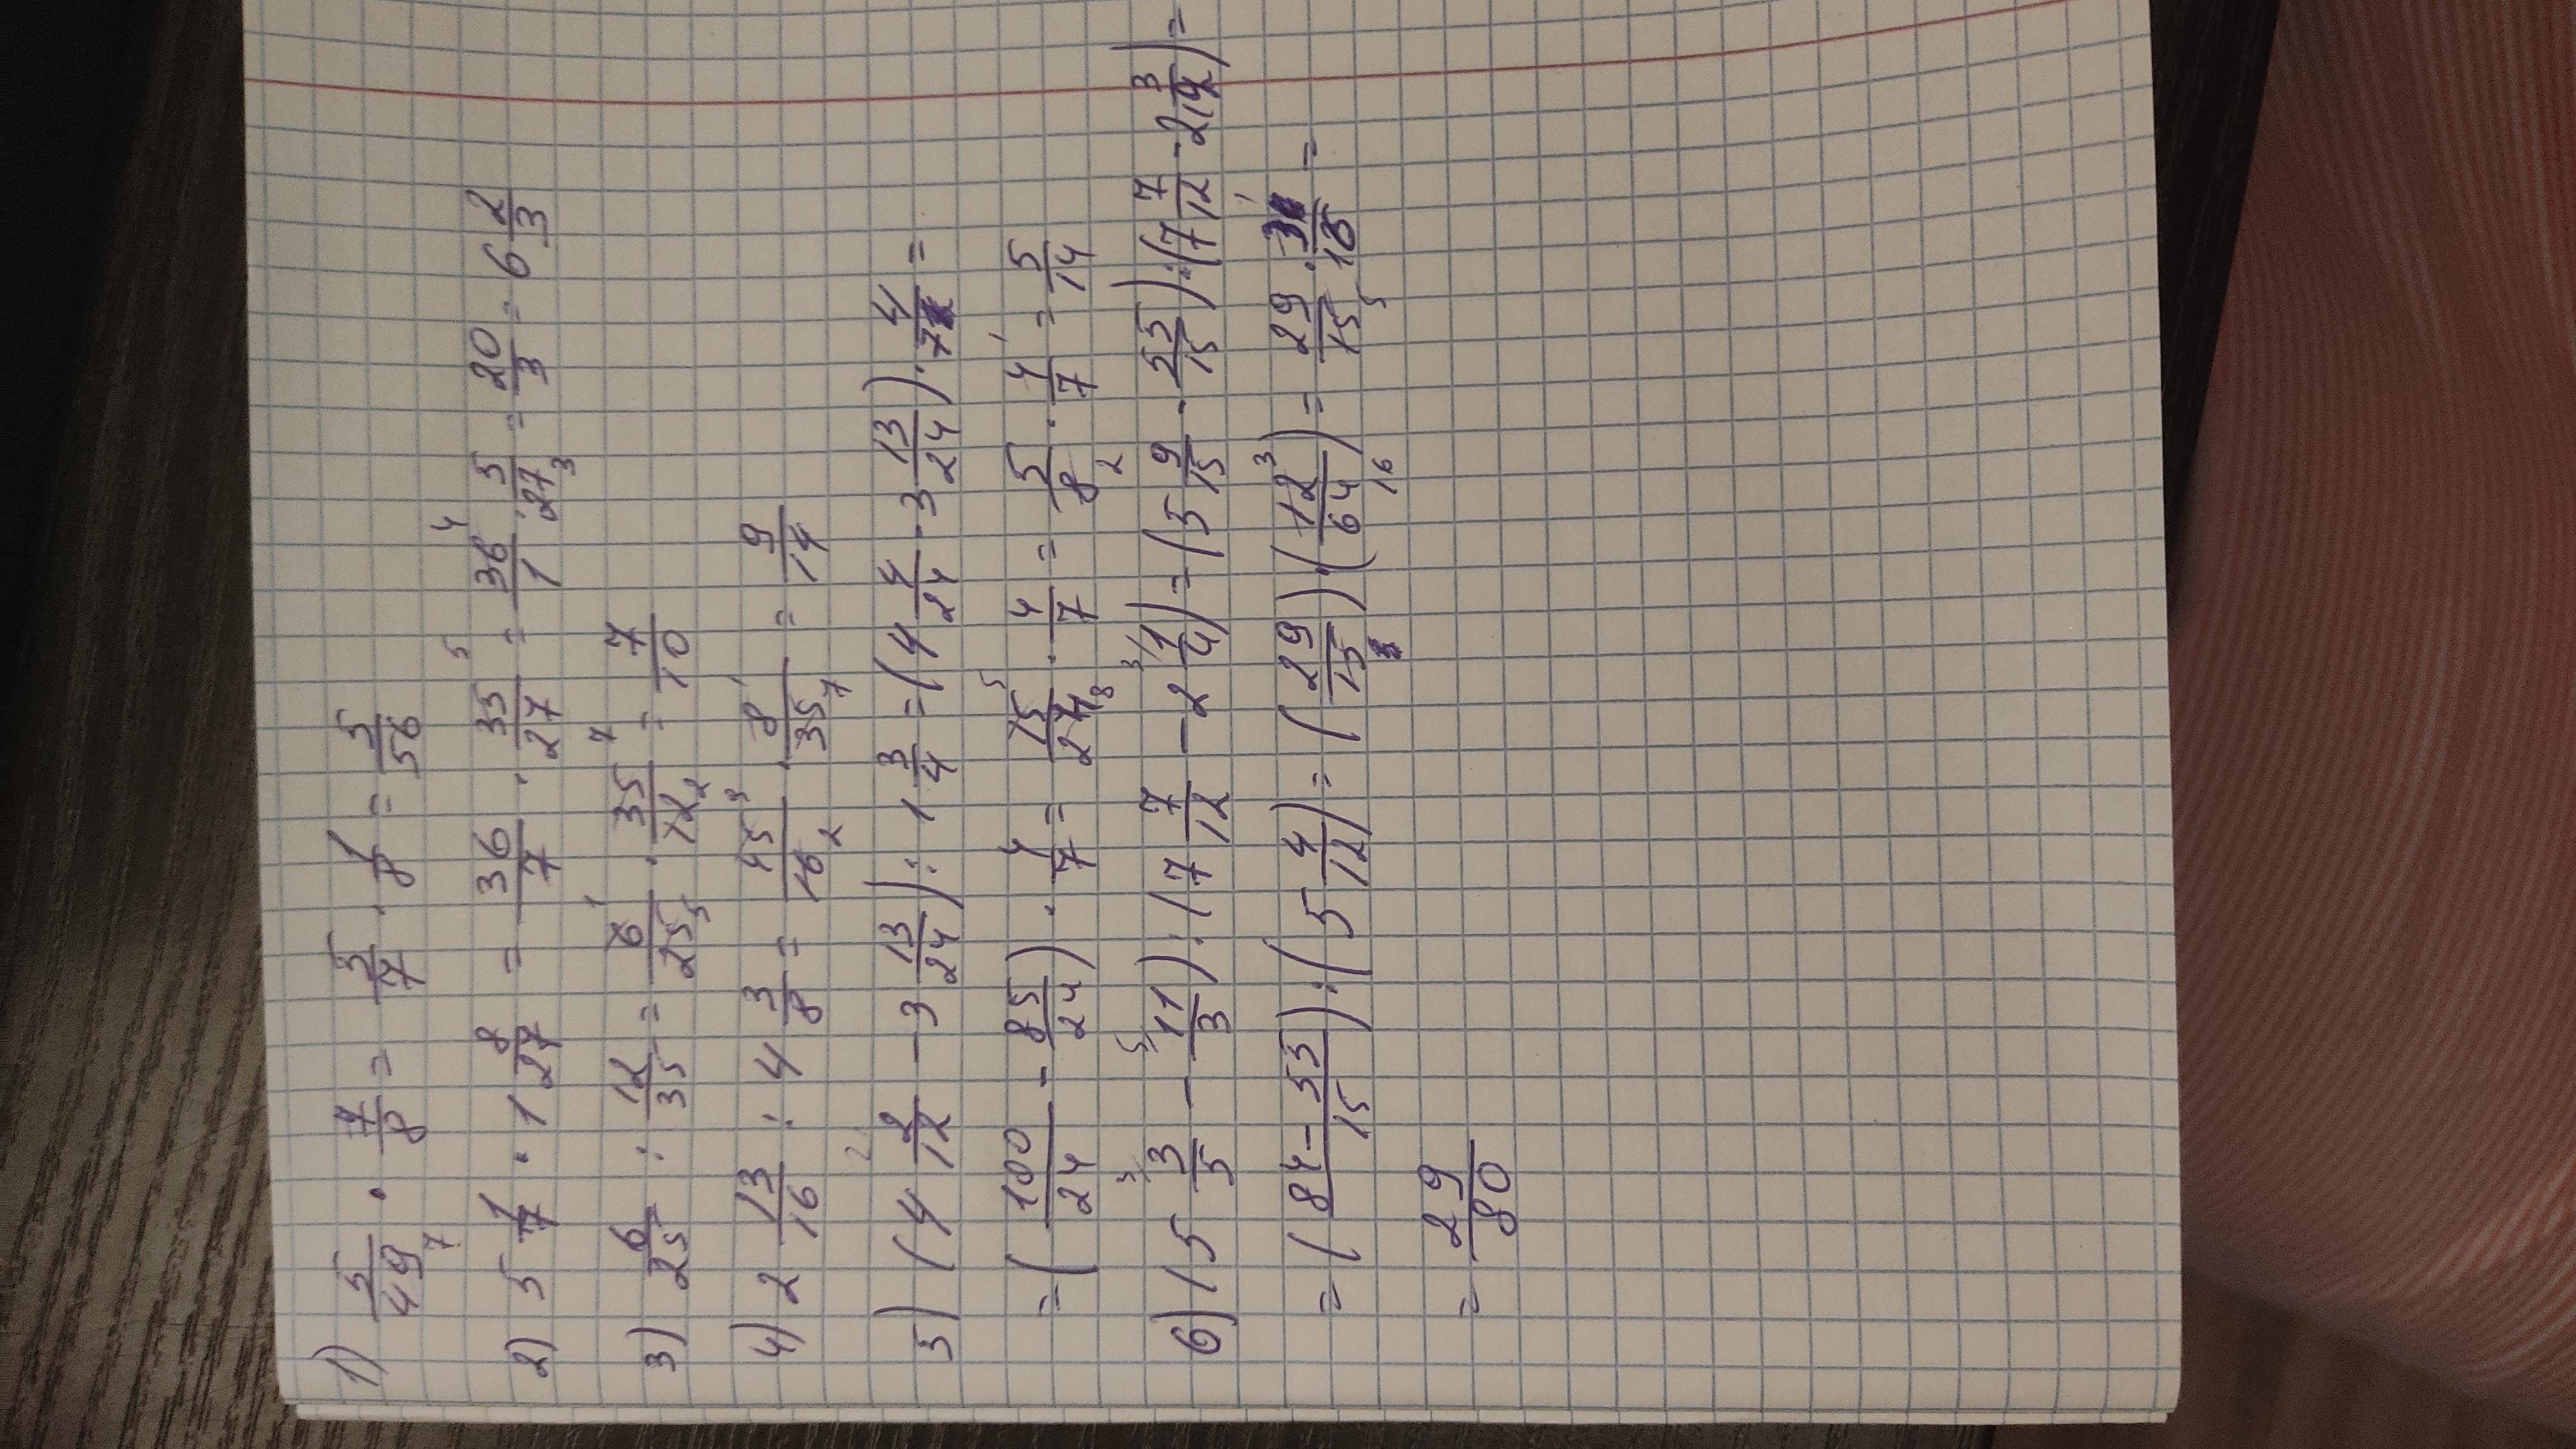 1) 5/49 7 · 7/8 = 5/7 · 1/8 = 5/56
2) 5 1/7 · 1 8/27 = 36/7 · 35/27 5 = 36/1 4 · 5/27 3 = 20/3 = 6 2/3
3) 6/25 : 12/35 = 6/25 1 5 · 35/12 7 2 = 7/10
4) 2 13/16 : 4 3/8 = 45/16 3 2 · 8/35 1 7 = 9/14
5) (4 2/12 2 - 3 13/24) : 1 3/4 = (4 4/24 - 3 13/24) · 4/7 =
= (100/24 - 85/24) · 4/7 = 15/24 5 8 · 4/7 = 5/8 2 · 4/7 1 = 5/14
6) (5 3/5 3 - 11/3 5) : (7 7/12 - 2 1/4 3) = (5 9/15 - 55/15) : (7 7/12 - 2 3/12) =
= (84-55/15) : (5 4/12) = (29/15) · (12/64 3 16) = 29/15 5 · 3/16 1 =
= 29/80